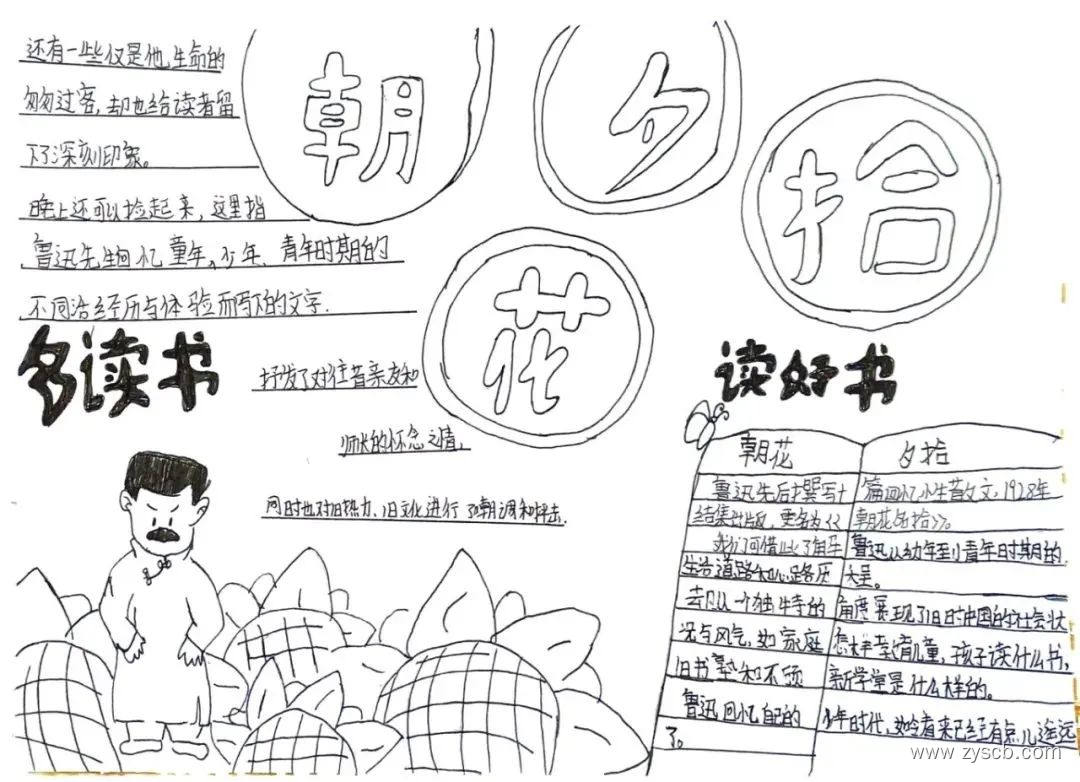 还有一些仅是他生命的
匆匆过客,却也给读者留
下了深刻印象。
晚上还可以捡起来,这里指
鲁迅先生回忆童年、少年、青年时期的
不同活经历与体验而写下的文字.
朝
夕
拾
花
多读书
抒发了对往昔亲友和
师长的怀念之情,
同时也对旧势力、旧文化进行了嘲调和抨击.
读好书
朝花 夕拾
鲁迅先后撰写十篇回忆性散文,1928年
结集出版,更名为《《朝花夕拾》》。
我们可借此了解鲁迅从幼年到青年时期的
生活道路和心路历
去从一个独特的角度展现了旧时中国的社会状
况与风气,如家庭怎样教育儿童,孩子读什么书,
旧书塾和不 新学堂是什么样的。
鲁迅回忆自己的少年时代,如今看来已经有点儿遥远
了。
www.zyscb.com